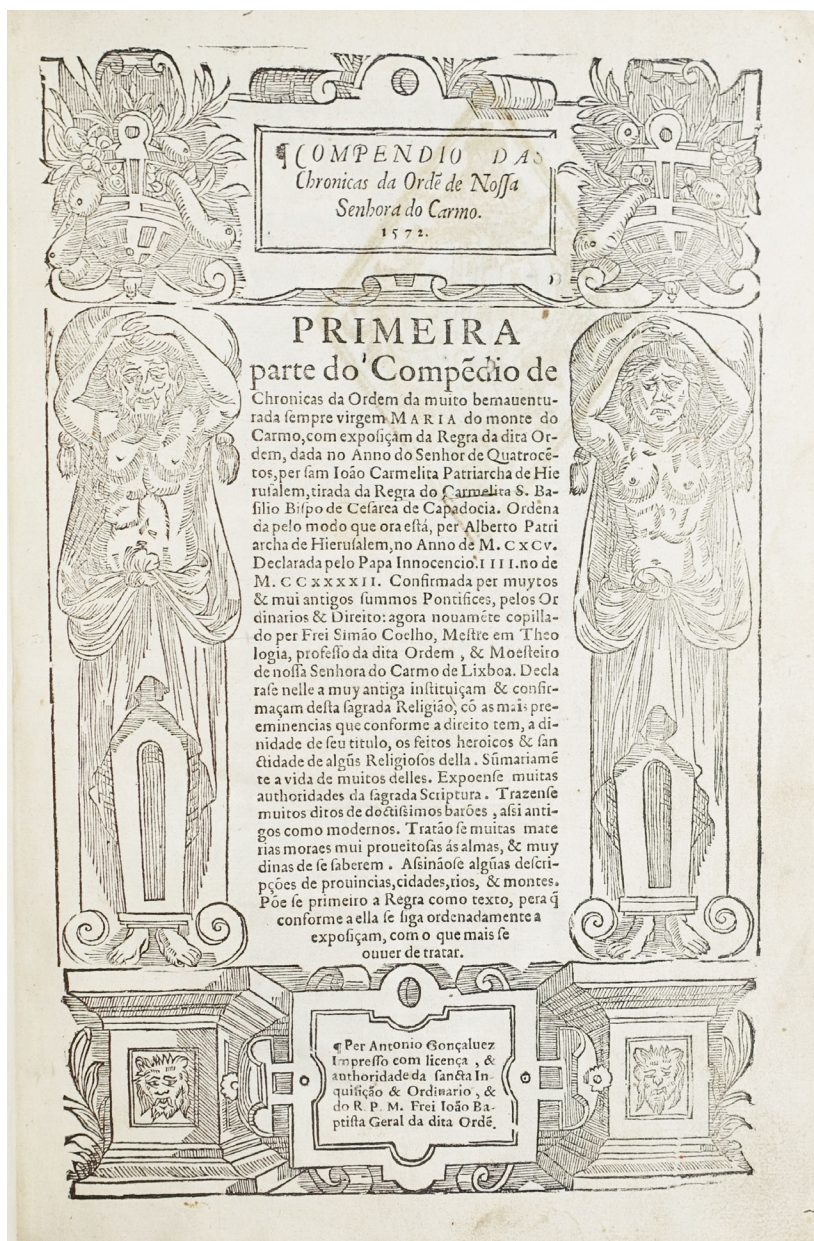 ¶ COMPENDIO DAS
Chronicas da Ordẽ de Noſſa
Senhora do Carmo.
1572.
PRIMEIRA
parte do Compẽdio de
Chronicas da Ordem da muito bemauentu-
rada ſempre virgem MARIA do monte do
Carmo, com expoſiçám da Regra da dita Or-
dem, dada no Anno do Senhor de Quatrocẽ-
tos, per ſam Ioão Carmelita Patriarcha de Hie
ruſalem, tirada da Regra do Carmelita S. Ba-
ſilio Biſpo de Ceſarea de Capadocia. Ordena
da pelo modo que ora eſtá, per Alberto Patri
archa de Hieruſalem, no Anno de M. CXCV.
Declarada pelo Papa Innocencio. IIII. no de
M. CCXXXXII. Confirmada per muytos
& mui antigos ſummos Pontifices, pelos Or
dinarios & Direito: agora nouamẽte copilla-
do per Frei Simão Coelho, Meſtre em Theo
logia, profeſſo da dita Ordem, & Moeſteiro
de noſſa Senhora do Carmo de Lixboa. Decla
raſe nelle a muy antiga inſtituiçam & confir-
maçam deſta ſagrada Religião, cõ as mais pre-
eminencias que conforme a direito tem, a di-
nidade de ſeu titulo, os feitos heroicos & ſan
ctidade de algũs Religioſos della. Sũmariamẽ
te a vida de muitos delles. Expoenſe muitas
authoridades da ſagrada Scriptura. Trazenſe
muitos ditos de doctiſsimos barões, aſsi anti-
gos como modernos. Tratão ſe muitas mate
rias moraes mui proueitoſas ás almas, & muy
dinas de ſe ſaberem. Aſsinãoſe algũas deſcri-
pções de prouincias, cidades, rios, & montes.
Põe ſe primeiro a Regra como texto, pera q̃
conforme a ella ſe ſiga ordenadamente a
expoſiçam, com o que mais ſe
ouuer de tratar.
¶ Per Antonio Gonçaluez
Impreſſo com licença, &
authoridade da ſancta In-
quiſição & Ordinario, &
do R. P. M. Frei Ioão Ba-
ptiſta Geral da dita Ordẽ.